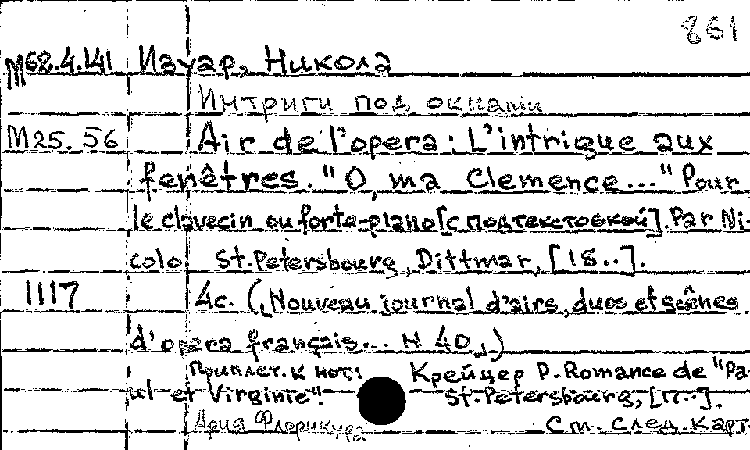 861
М68.4.141 Изуар, Никола
Интриги под окнами
М25.56 Air de l'opera: L'intrigue aux
fenêtres. "O, ma Clemence..." Pour
le clavecin ou forte-piano [с подтекстовкой]. Par Ni-
colo. St.Petersbourg, Dittmar, [18..].
1117 4с. („Nouveau journal d'airs, duos et scènes
d'opera français... N 40„)
Приплет. к нот: Крейцер Р. Romance de "Pa-
ul et Virginie". St.Petersbourg, [17..].
Ария Флорикура См. след. карт.